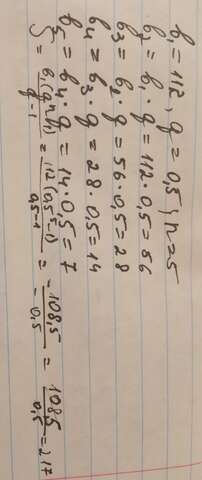 b₁ = 112, q = 0,5; n = 5
b₂ = b₁ · q = 112 · 0,5 = 56
b₃ = b₂ · q = 56 · 0,5 = 28
b₄ = b₃ · q = 28 · 0,5 = 14
b₅ = b₄ · q = 14 · 0,5 = 7
S = b₁(qⁿ-1)/q-1 = 112(0,5⁵-1)/0,5-1 = -108,5/-0,5 = 108,5/0,5 = 217